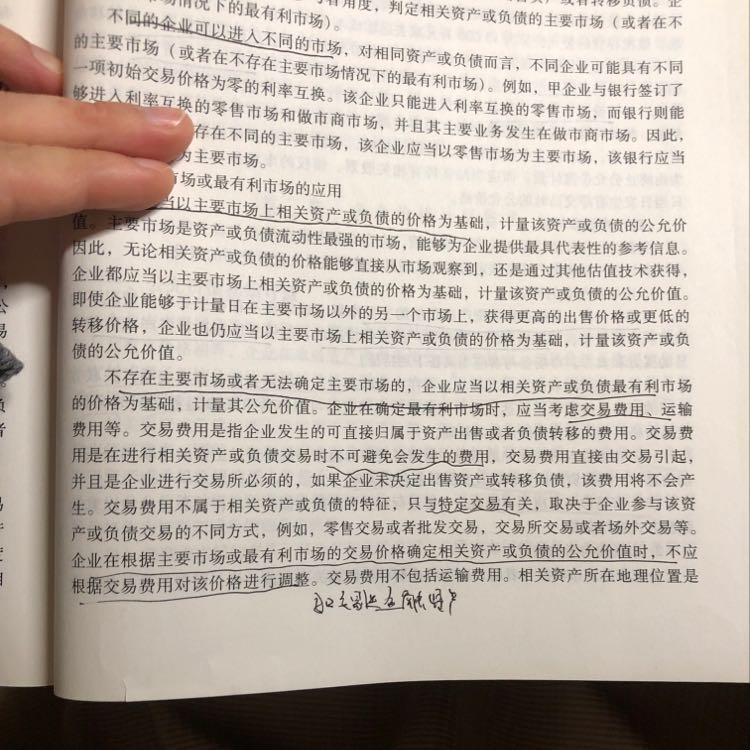 者角度，判定相关资产或负债的主要市场（或者在不
市场情况下的最有利市场）。
不同的企业可以进入不同的市场，对相同资产或负债而言，不同企业可能具有不同
的主要市场（或者在不存在主要市场情况下的最有利市场）。例如，甲企业与银行签订了
一项初始交易价格为零的利率互换。该企业只能进入利率互换的零售市场，而银行则能
够进入利率互换的零售市场和做市商市场，并且其主要业务发生在做市商市场。因此，
存在不同的主要市场，该企业应当以零售市场为主要市场，该银行应当
为主要市场。
市场或最有利市场的应用
当以主要市场上相关资产或负债的价格为基础，计量该资产或负债的公允价
值。主要市场是资产或负债流动性最强的市场，能够为企业提供最具代表性的参考信息。
因此，无论相关资产或负债的价格能够直接从市场观察到，还是通过其他估值技术获得，
企业都应当以主要市场上相关资产或负债的价格为基础，计量该资产或负债的公允价值。
即使企业能够于计量日在主要市场以外的另一个市场上，获得更高的出售价格或更低的
转移价格，企业也仍应当以主要市场上相关资产或负债的价格为基础，计量该资产或负
债的公允价值。
不存在主要市场或者无法确定主要市场的，企业应当以相关资产或负债最有利市场
的价格为基础，计量其公允价值。企业在确定最有利市场时，应当考虑交易费用、运输
费用等。交易费用是指企业发生的可直接归属于资产出售或者负债转移的费用。交易费
用是在进行相关资产或负债交易时不可避免会发生的费用，交易费用直接由交易引起，
并且是企业进行交易所必须的，如果企业未决定出售资产或转移负债，该费用将不会产
生。交易费用不属于相关资产或负债的特征，只与特定交易有关，取决于企业参与该资
产或负债交易的不同方式，例如，零售交易或者批发交易，交易所交易或者场外交易等。
企业在根据主要市场或最有利市场的交易价格确定相关资产或负债的公允价值时，不应
根据交易费用对该价格进行调整。交易费用不包括运输费用。相关资产所在地理位置是